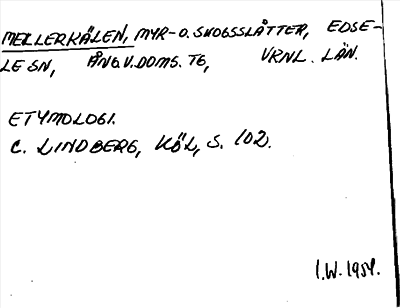 MELLERKÄLEN, MYR- O. SKOGSSLÅTTER, EDSE-
LE SN, ÅNG. V. DOMS. TG, VRNL. LÄN.
ETYMOLOGI.
C. LINDBERG, KÖL, S. 102.
I.W. 1954.